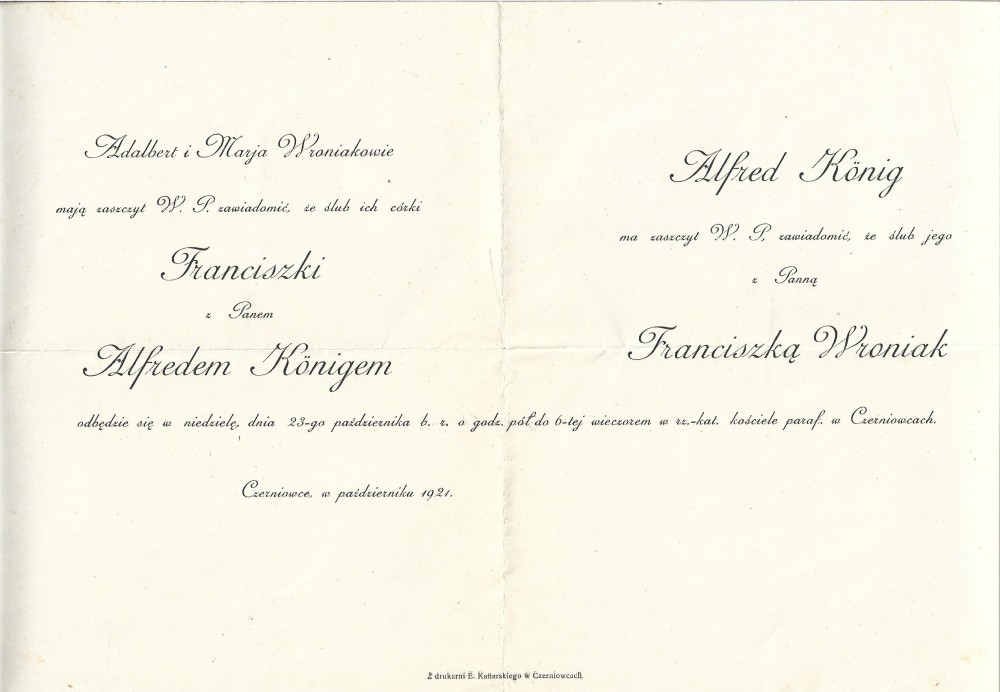 Adalbert i Marja Wroniakowie
mają zaszczyt W. P. zawiadomić, że ślub ich córki
Franciszki
z Panem
Alfredem Königem
Alfred König
ma zaszczyt W. P. zawiadomić, że ślub jego
z Panną
Franciszką Wroniak
odbędzie się w niedzielę, dnia 23-go października b. r. o godz. pół do 6-tej wieczorem w rz.-kat. kościele paraf. w Czerniowcach.
Czerniowce, w październiku 1921.
Z drukarni E. Kattarskiego w Czerniowcach.